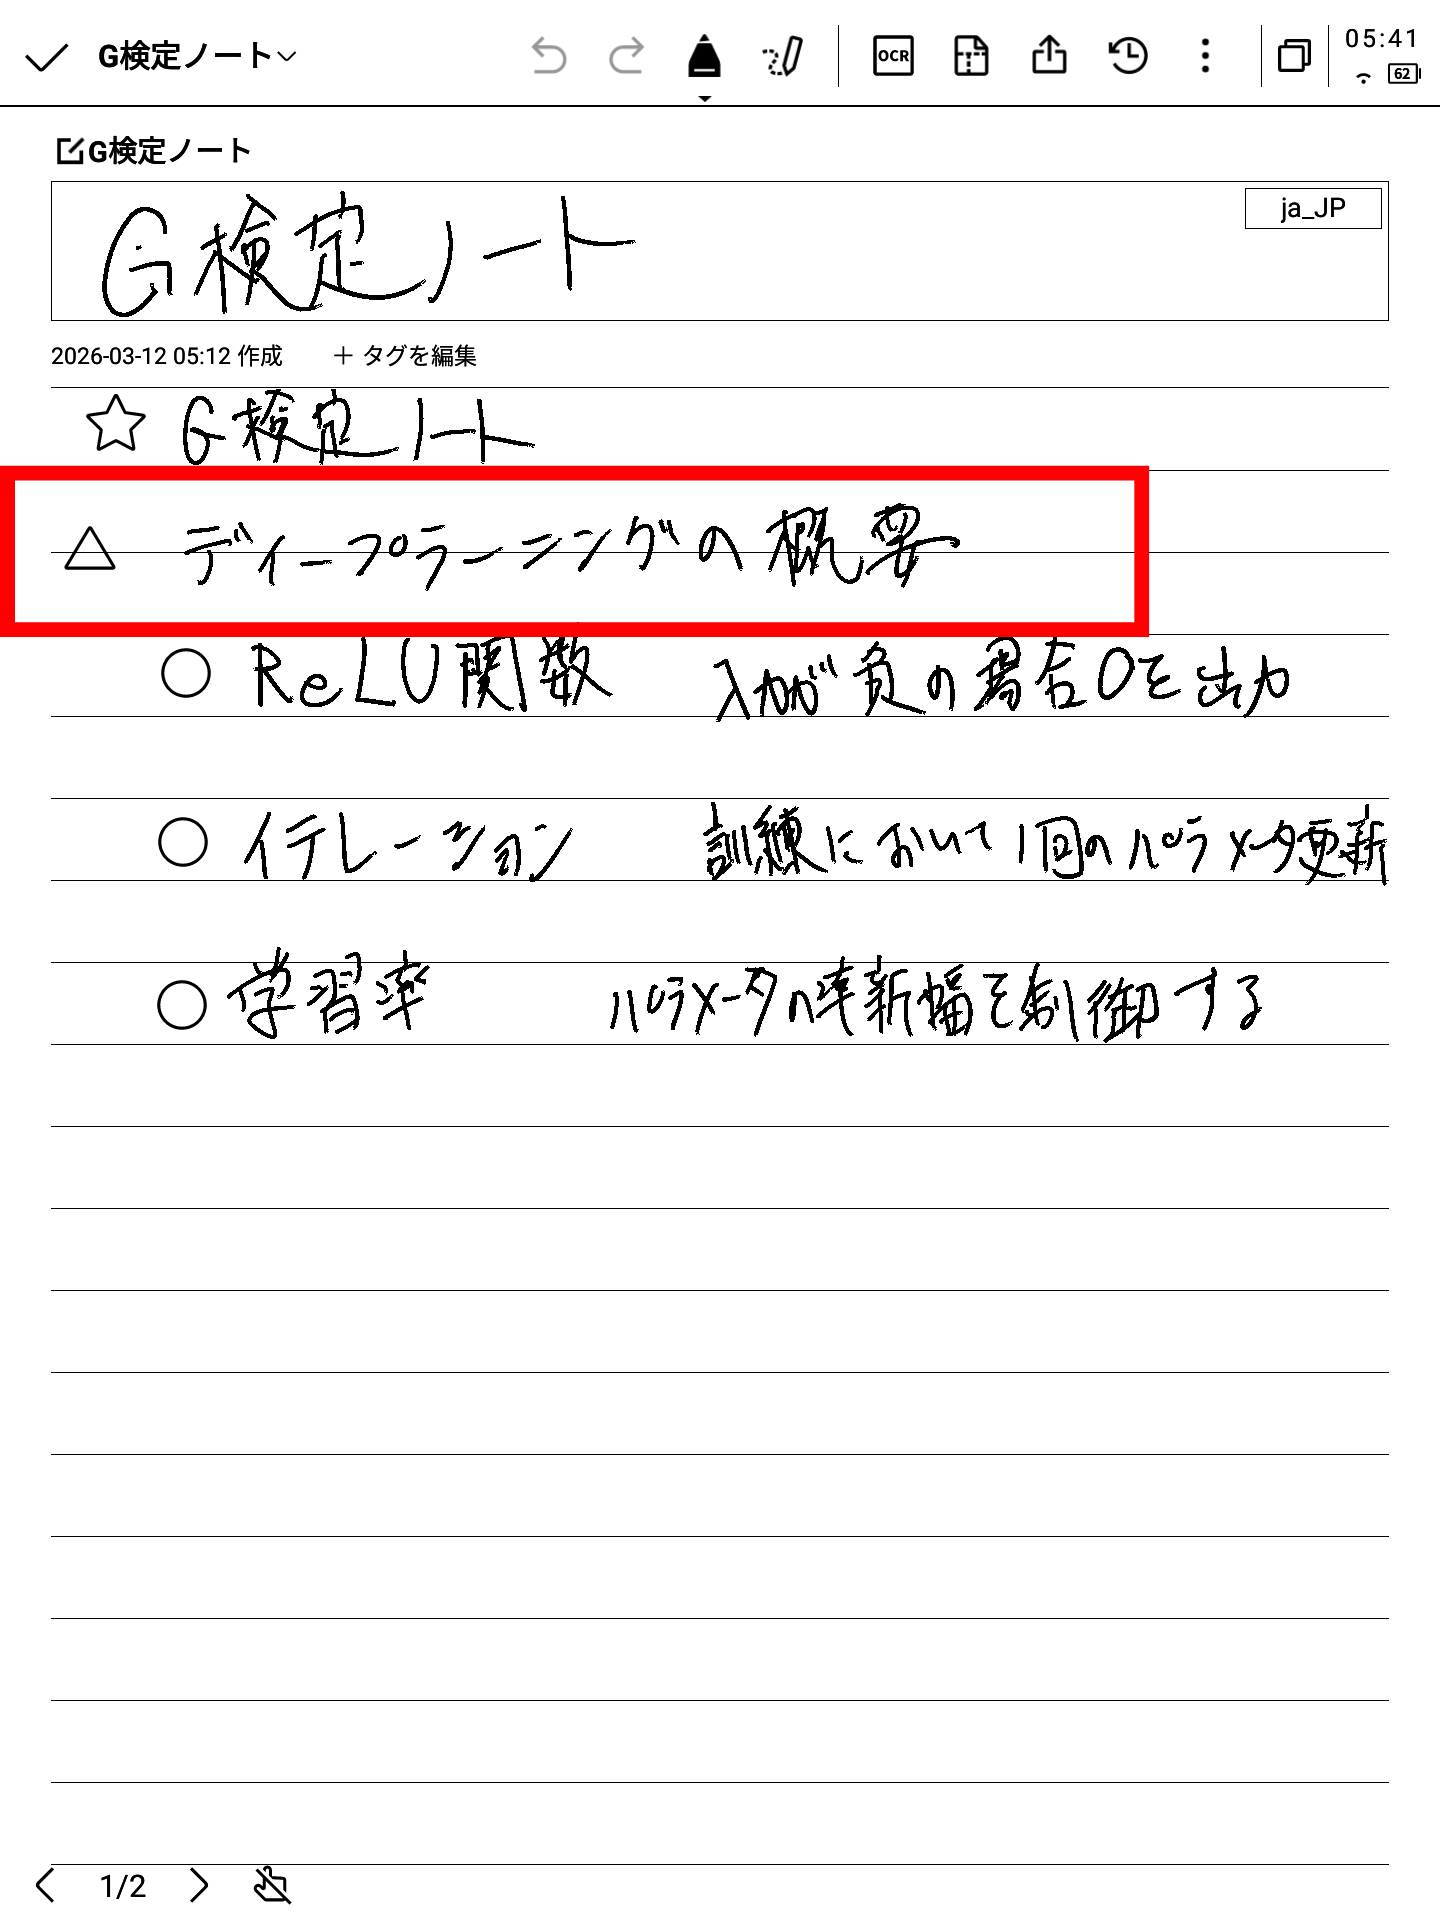 G検定ノート
OCR
05:41
62
G検定ノート
G検定ノート
ja_JP
2026-03-12 05:12 作成 + タグを編集
☆ G検定ノート
△ ディープラーニングの概要
○ ReLU関数 入力が負の場合0を出力
○ イテレーション 訓練において1回のパラメータ更新
○ 学習率 パラメータの率新幅を制御する
1/2